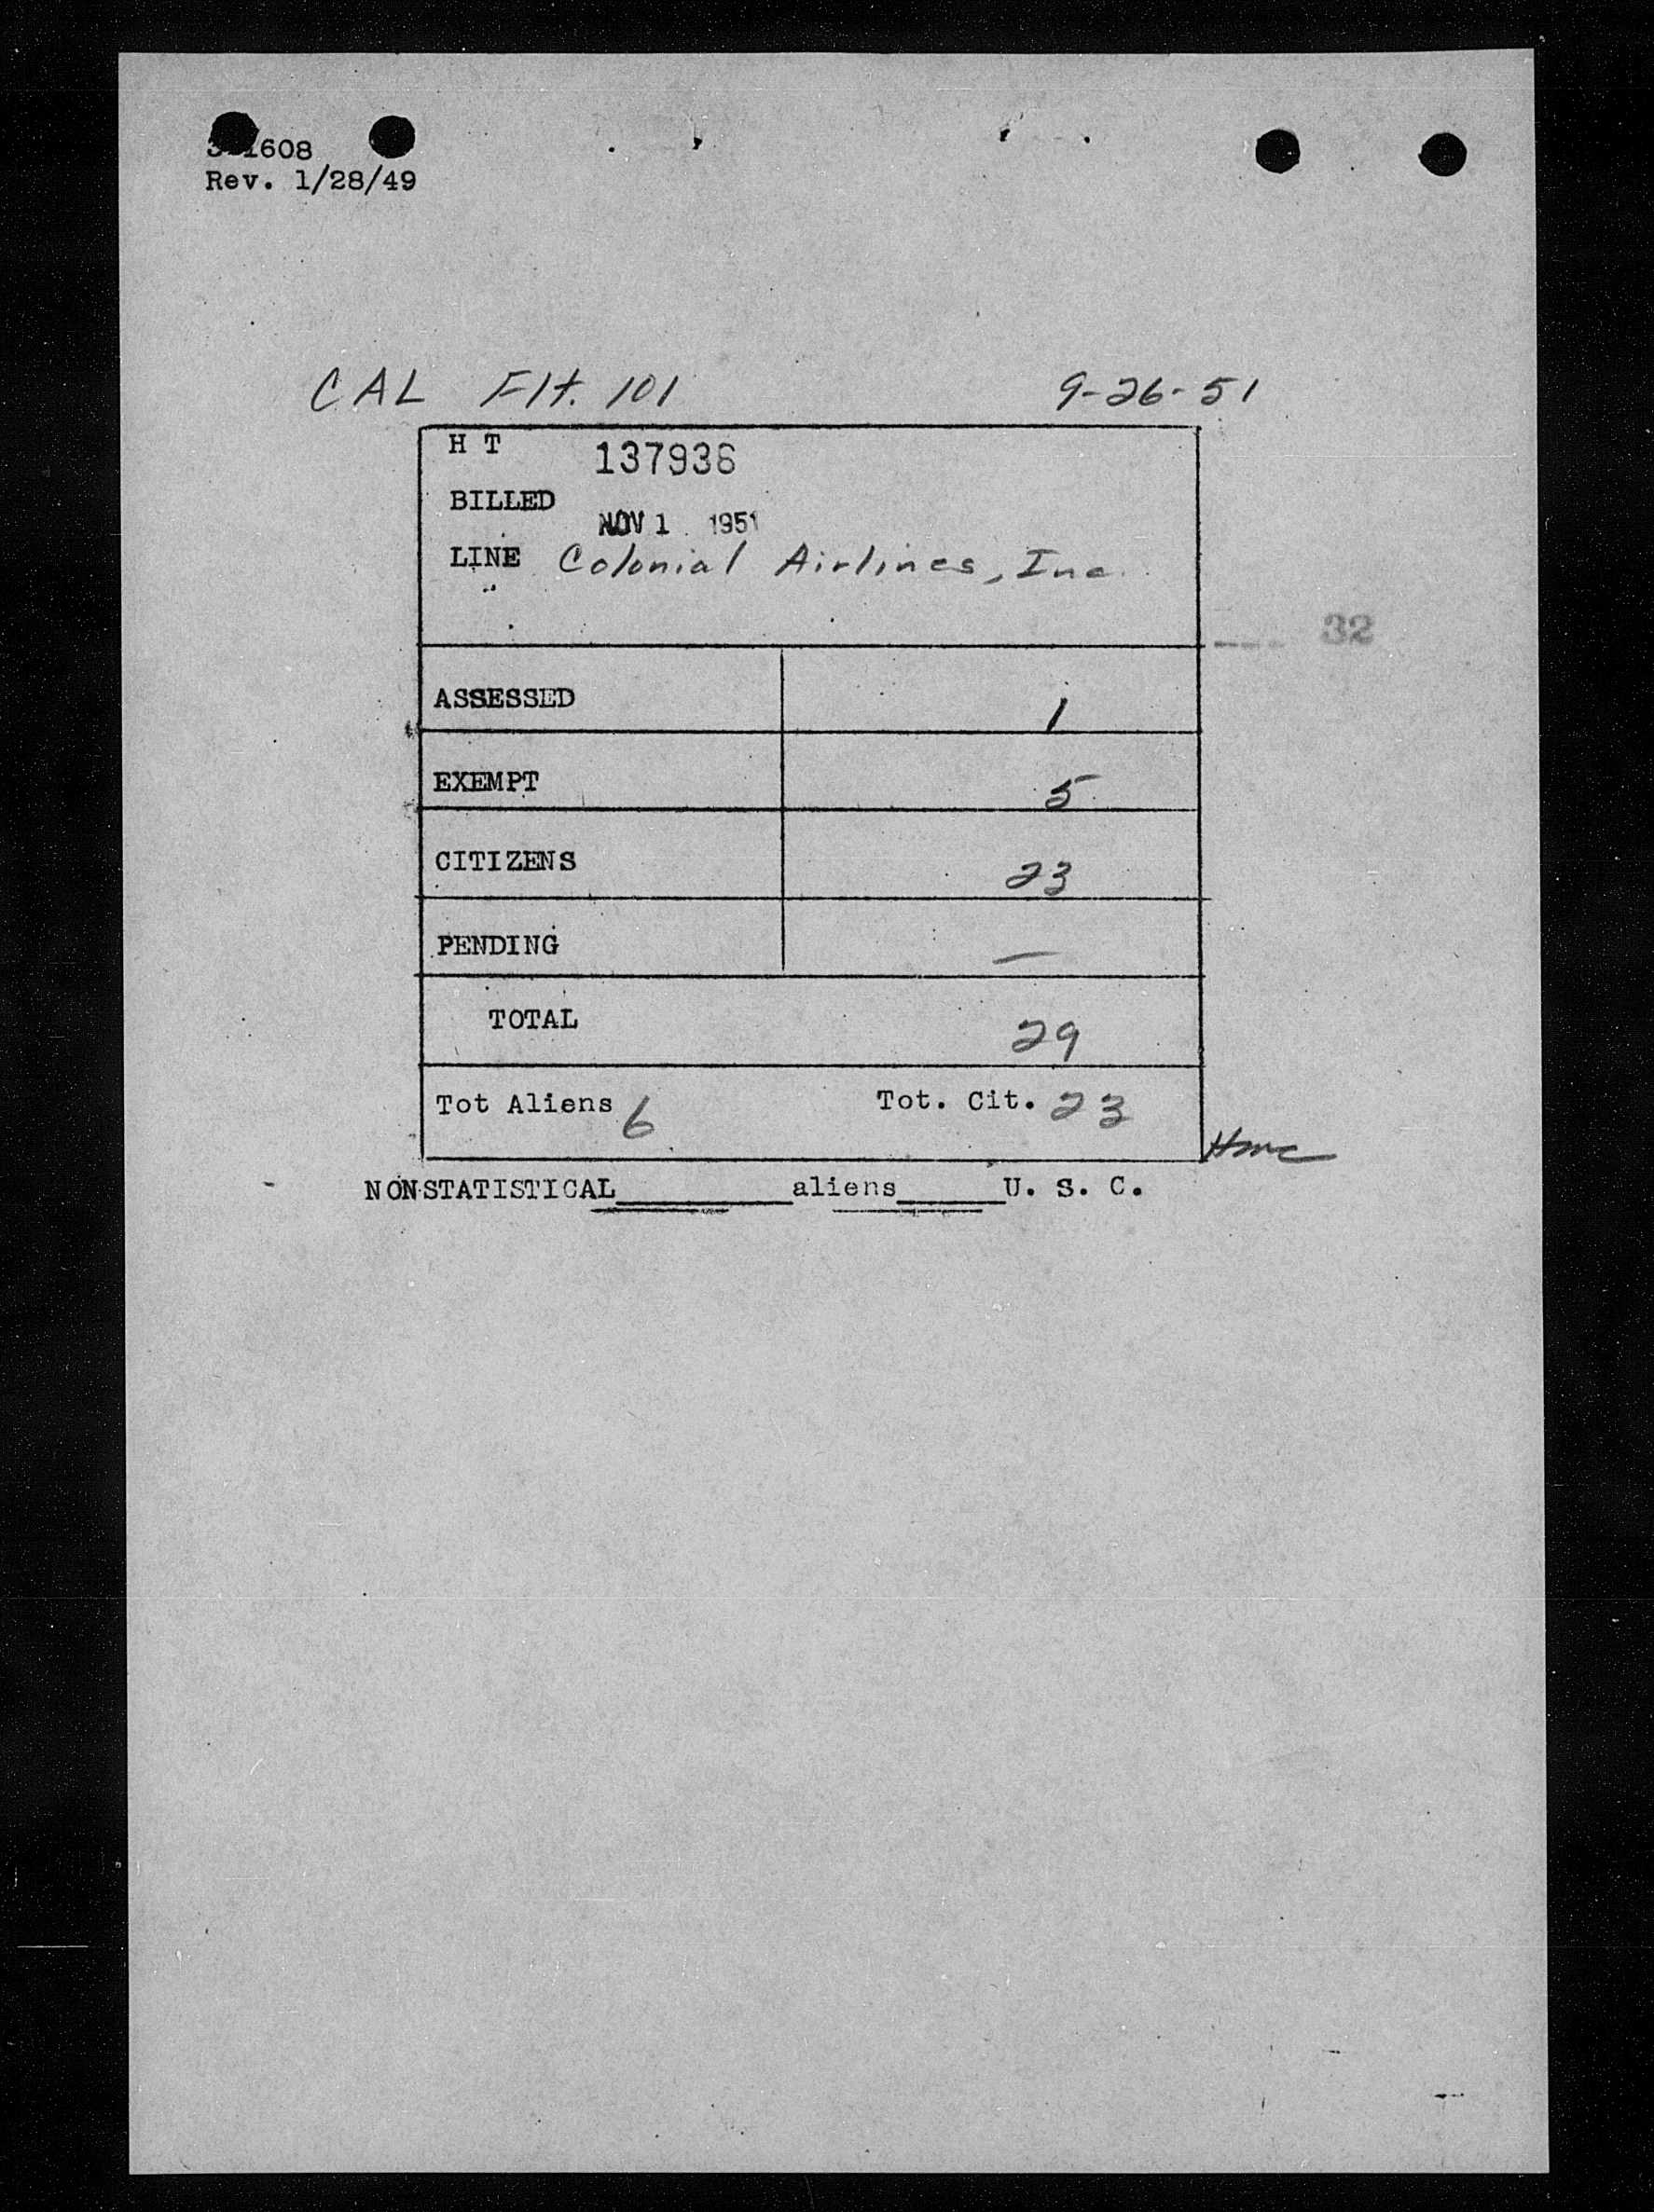 1608
Rev. 1/28/49
CAL Flt. 101 9-26-51
H T 137936
BILLED
NOV 1 1951
LINE Colonial Airlines, Inc.
32
ASSESSED 1
EXEMPT 5
CITIZENS 23
PENDING —
TOTAL 29
Tot Aliens 6 Tot. Cit. 23
NONSTATISTICAL______aliens______U. S. C.